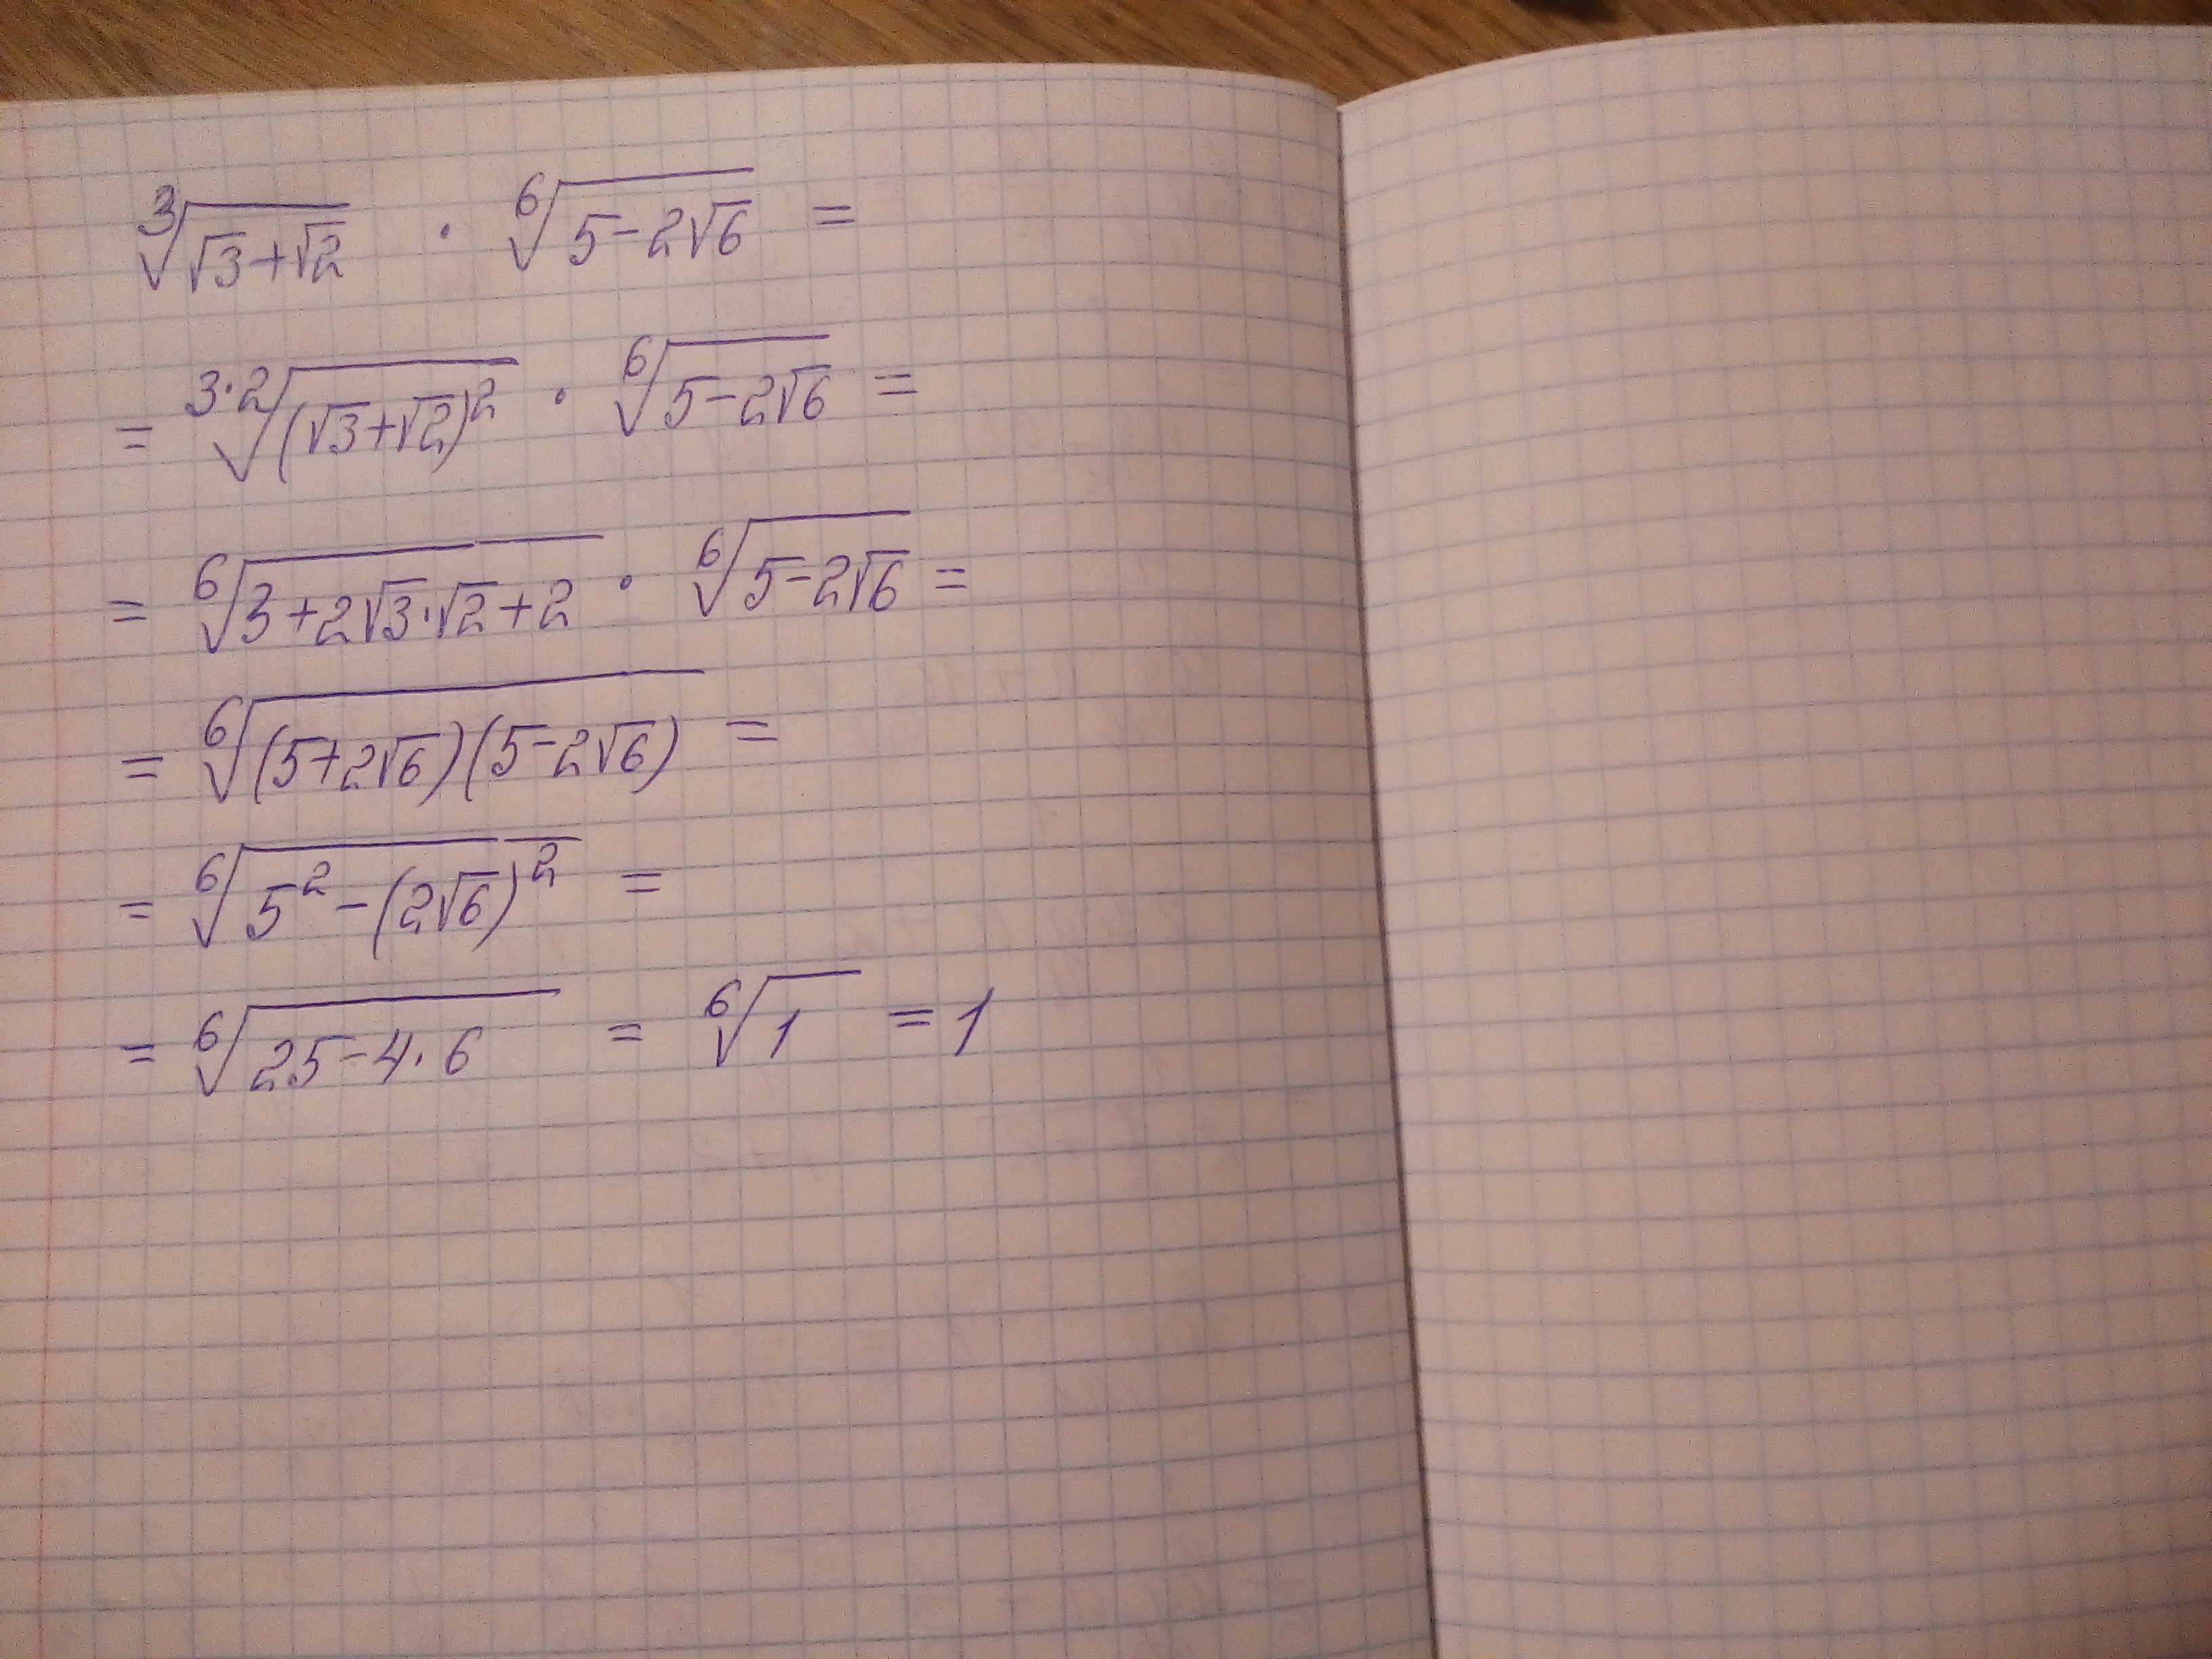 ∛(√3+√2) · ⁶√(5−2√6) =
= ³·²√((√3+√2)²) · ⁶√(5−2√6) =
= ⁶√(3+2√3·√2+2) · ⁶√(5−2√6) =
= ⁶√((5+2√6)(5−2√6)) =
= ⁶√(5²−(2√6)²) =
= ⁶√(25−4·6) = ⁶√1 = 1